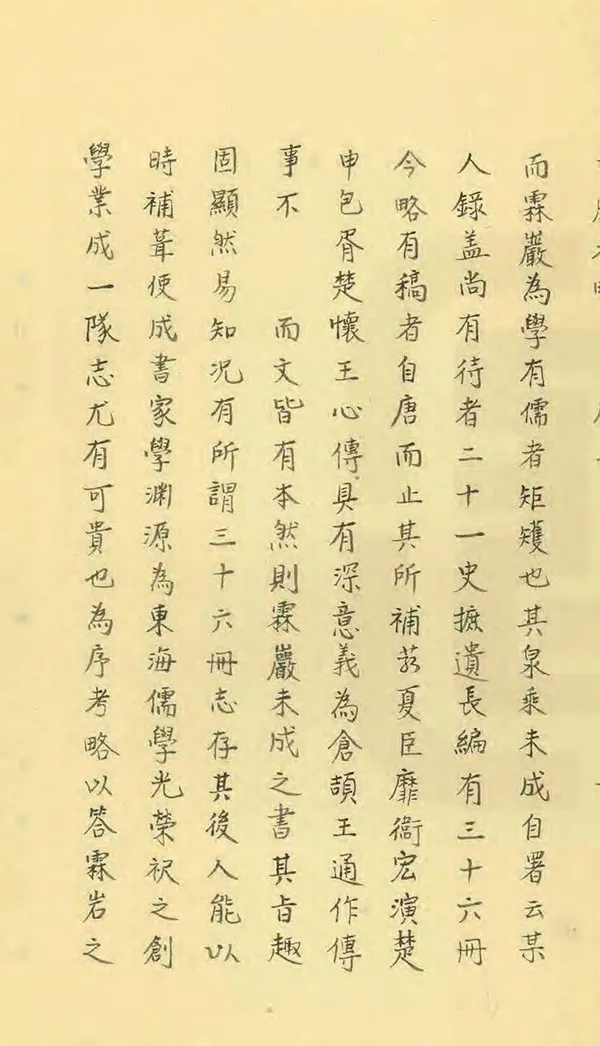 而霖巖為學有儒者矩矱也其泉乘未成自署云某
人錄盖尚有待者二十一史摭遺長編有三十六冊
今略有稿者自唐而止其所補若夏臣靡衛宏演楚
申包胥楚懷王心傳具有深意義為倉頡王通作傳
事不 而文皆有本然則霖巖未成之書其旨趣
固顯然易知况有所謂三十六冊志存其後人能以
時補葺使成書家學渊源為東海儒學光榮視之創
學業成一隊志尤有可貴也為序考略以答霖岩之